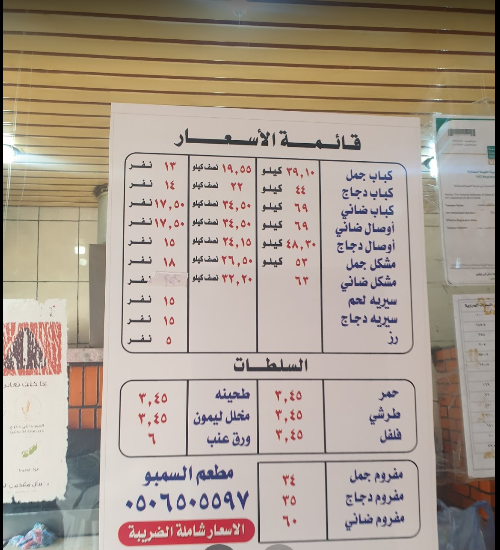 قائمة الأسعار
كباب جمل ٣٩,١٠ كيلو ١٩,٥٥ نصف كيلو ١٣ نفر
كباب دجاج ٤٤ كيلو ٢٢ نصف كيلو ١٤ نفر
كباب ضاني ٦٩ كيلو ٣٤,٥٠ نصف كيلو ١٧,٥٠ نفر
أوصال ضاني ٦٩ كيلو ٣٤,٥٠ نصف كيلو ١٧,٥٠ نفر
أوصال دجاج ٤٨,٣٠ كيلو ٢٤,١٥ نصف كيلو ١٥ نفر
مشكل جمل ٥٣ كيلو ٢٦,٥٠ نصف كيلو ١٨ نفر
مشكل ضاني ٦٣ ٣٢,٢٠ نصف كيلو نفر
سيريه لحم ١٥ نفر
سيريه دجاج ١٥ نفر
رز ٥ نفر
السلطات
حمر ٣,٤٥ طحينه ٣,٤٥
طرشي ٣,٤٥ مخلل ليمون ٣,٤٥
فلفل ٣,٤٥ ورق عنب ٦
مفروم جمل ٣٤
مفروم دجاج ٣٥
مفروم ضاني ٦٠
مطعم السمبو
٠٥٠٦٥٠٥٥٩٧
الاسعار شاملة الضريبة